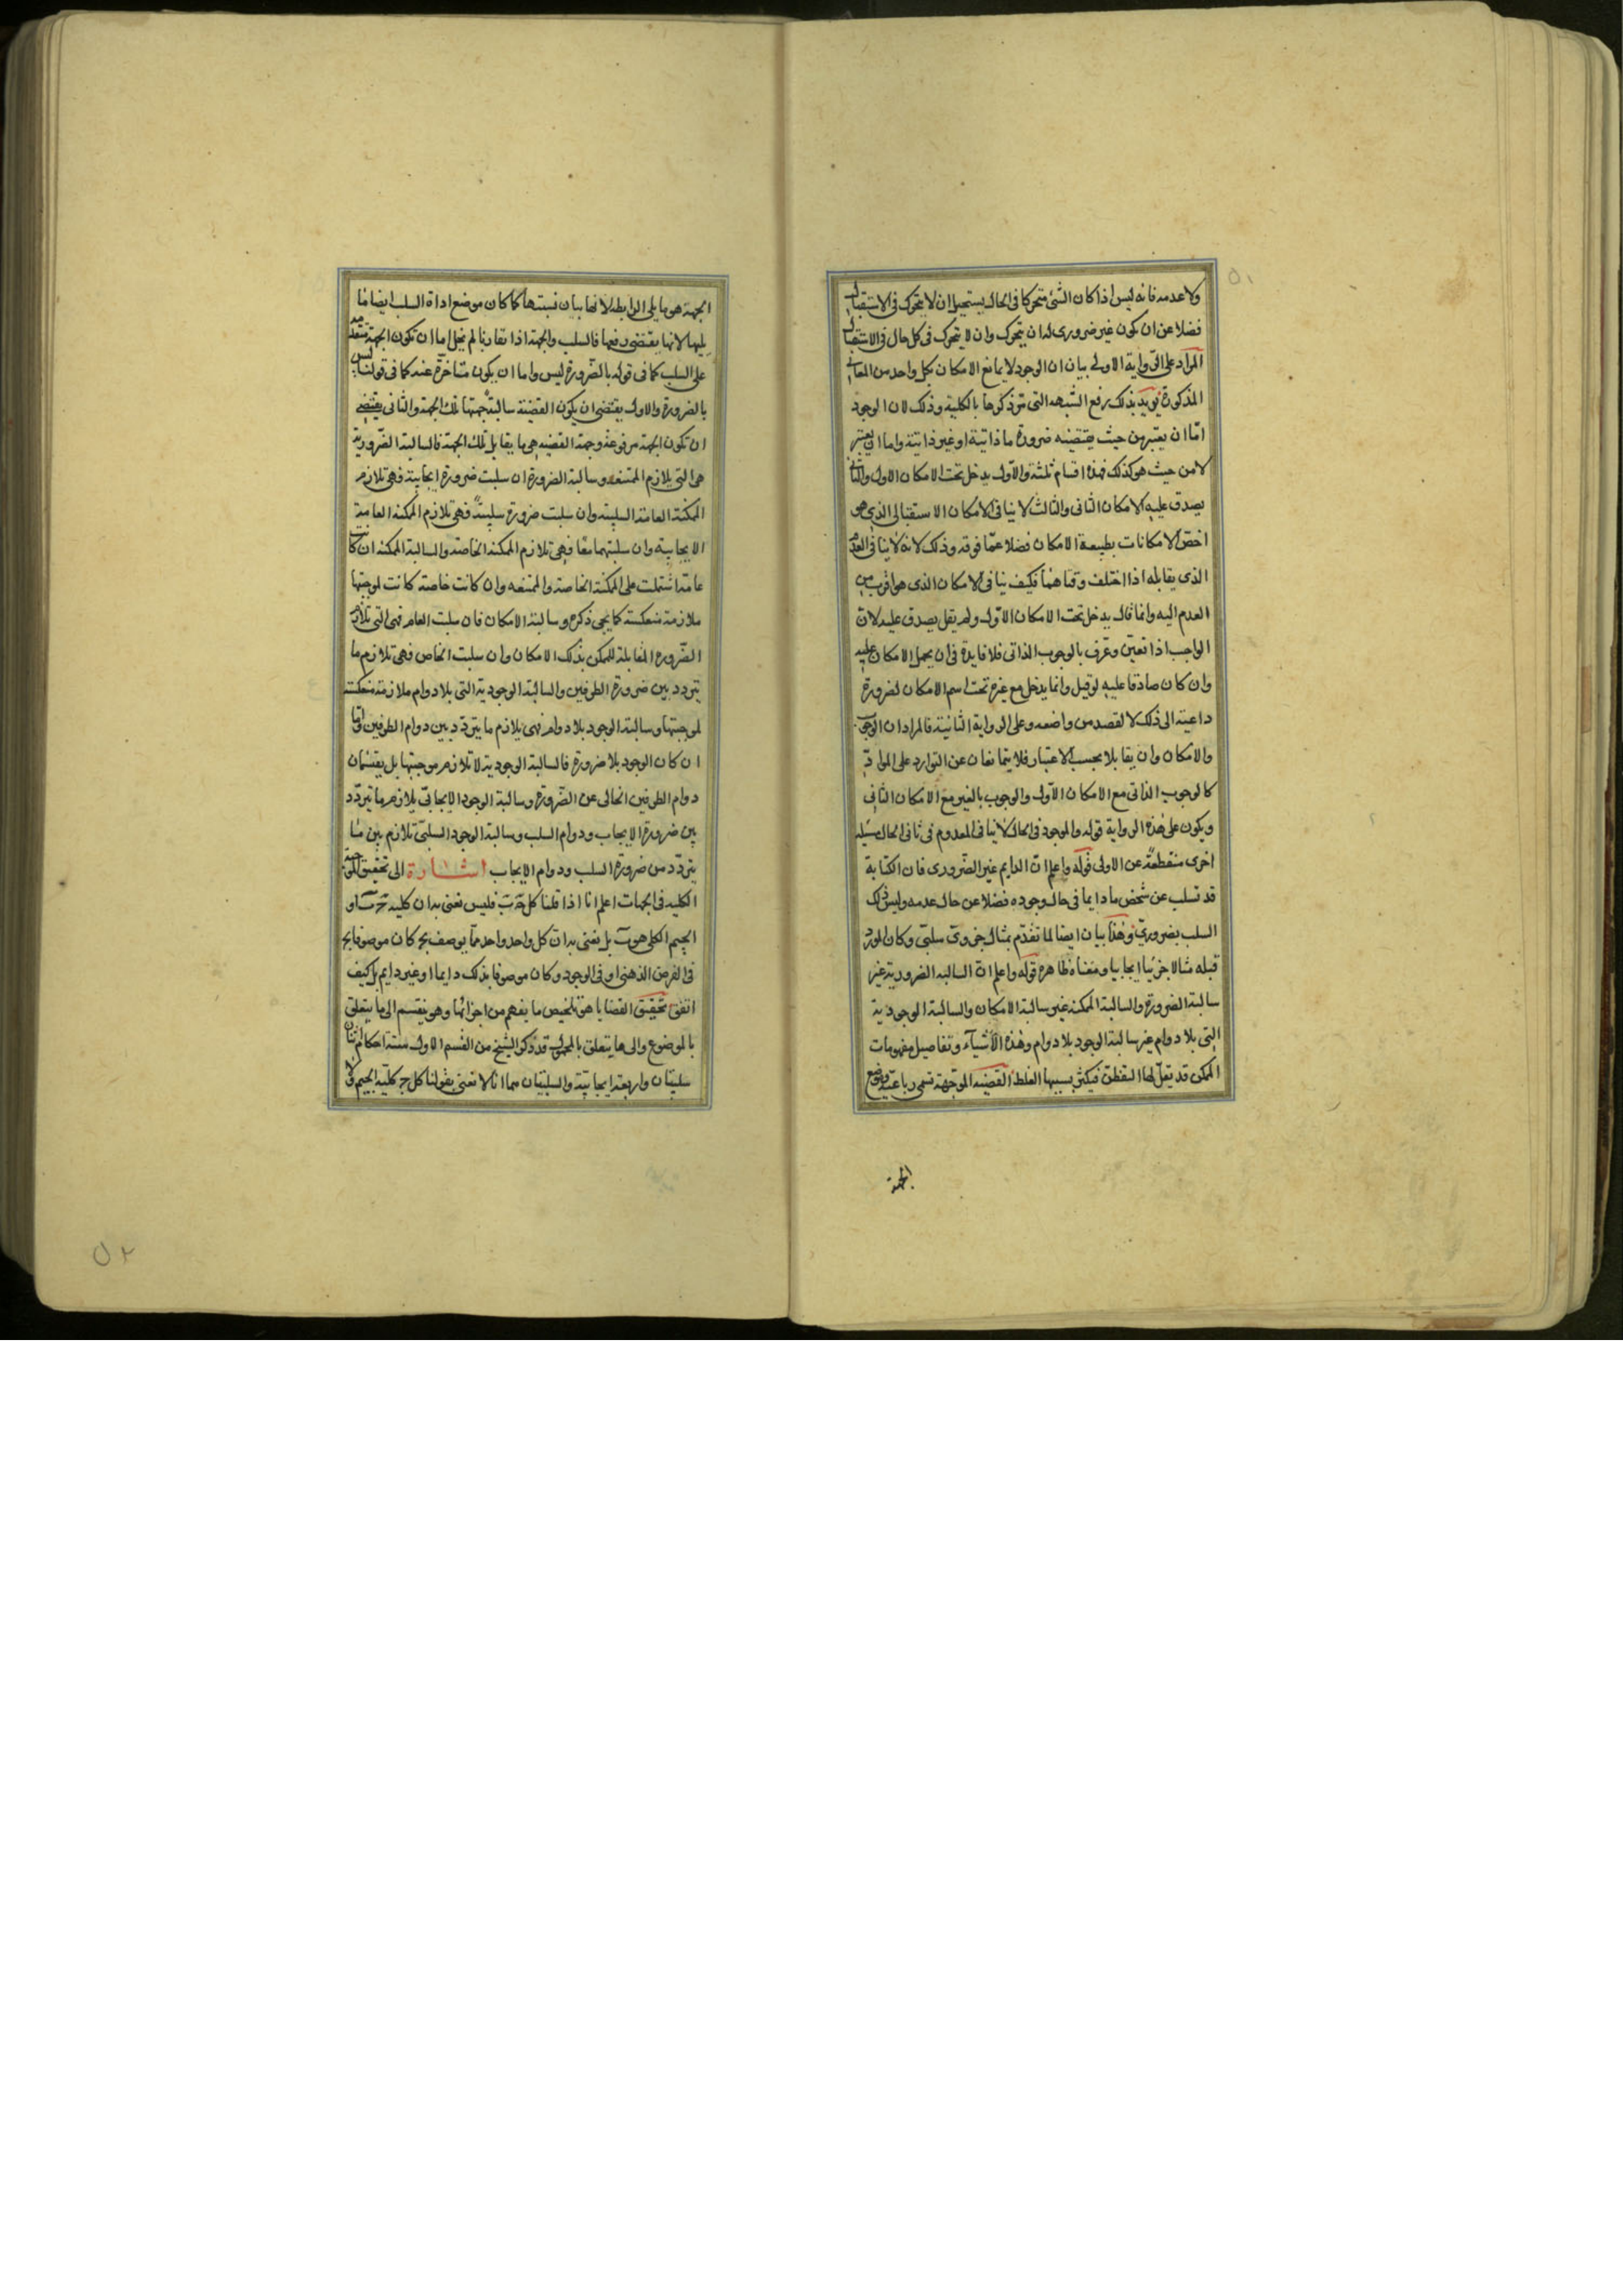 ٥١
ولا عدمه فانه ليس اذا كان الشئ متحركا فى الحال يستحيل ان لا يتحرك فى الاستقبال
فضلا عن ان يكون غير ضرورى له ان يتحرك وان لا يتحرك فى كل حال فى الاستقبال
المراد على الرواية الاولى بيان ان الوجود لا يمانع الامكان بكل واحد من المعانى
المذكورة يويد بذلك رفع الشبهه التى مر ذكرها بالكلية وذلك لان الوجود
امّا ان يعتبر من حيث يقتضيه ضرورة ما ذاتية او غير ذاتية واما ان يعتبر
لا من حيث هو كذلك فهذه اقسام ثلثة والاوّل يدخل تحت الامكان الاول والثانى
يصدق عليه الامكان الثانى والثالث لا ينافى الامكان الاستقبالى الذى هو
اخصّ الامكانات بطبيعة الامكان فضلا عمّا فوقه وذلك لانه لا ينافى العدم
الذى يقابله اذا اختلف وقتاهما فكيف ينافى الامكان الذى هو اقرب من
العدم اليه وانما قال يدخل تحت الامكان الاوّل ولم يقل يصدق عليه لانّ
الواجب اذا تعيّن وعرف بالوجوب الذاتى فلا فايدة فى ان يحمل الامكان عليه
وان كان صادقا عليه لو قيل وانما يدخل مع غيره تحت اسم الامكان لضرورة
داعية الى ذلك لا لقصد من واضعه وعلى الرواية الثانية فالمراد ان الوجوب
والامكان وان يقابلا بحسب الاعتبار فلا يتمانعان عن التوارد على الموادّ
كالوجوب الذاتى مع الامكان الاوّل والوجوب بالغير مع الامكان الثانى
ويكون على هذه الرواية قوله والموجود فى الحال لا ينافى المعدوم فى ثانى الحال مسئلة
اخرى منقطعة عن الاولى قوله واعلم انّ الدايم غير الضرورى فان الكتابة
قد تسلب عن شخص ما دايما فى حال وجوده فضلا عن حال عدمه وليس ذلك
السلب بضرورىّ وهذا بيان ايضا لما تقدّم بمثال جزوىّ سلبىّ وكان المورد
قبله مثالا جزئيا ايجابيا ومعناه ظاهره قوله واعلم انّ السالبه الضرورية غير
سالبة الضرورة والسالبة الممكنه غير سالبة الامكان والسالبة الوجودية
التى بلا دوام غير سالبة الوجود بلا دوام وهذه الاشيآء وتفاصيل مفهومات
الممكن قد يقلّ لها التفطن فيكثر بسببها الغلط القضيه الموجّهة تسمى رباعية وموضع
الجهة
الجهة هو ما يلى الرابطه لانها بيان نسبتها كما كان موضع اداة السلب ايضا ما
يليها لانها يقتضى رفعها فالسلب والجهة اذا تقارنا لم يخل اما ان تكون الجهة متقدمة
على السلب كما فى قوله بالضرورة ليس واما ان يكون متاخّرة عنه كما فى قولنا ليس
بالضرورة والاول يقتضى ان يكون القضية سالبة جهتها تلك الجهة والثانى يقتضى
ان تكون الجهة مرفوعة وجهة القضيه هى ما يقابل تلك الجهة فالسالبة الضّرورية
هى التى يلازم الممتنعه وسالبة الضرورة ان سلبت ضرورة ايجابية فهى تلازم
الممكنة العامة السلبية وان سلبت ضرورة سلبيةً فهى تلازم الممكنة العامية
الايجابية وان سلبتهما معًا فهى تلازم الممكنة الخاصة والسالبة الممكنه ان كانت
عامة اشتملت على الممكنة الخاصة والممتنعه وان كانت خاصة كانت لموجبتها
ملازمة منعكسة كما يجى ذكره وسالبة الامكان فان سلبت العام فهى التى تلازم
الضّرورة المقابلة للممكن بذلك الامكان وان سلبت الخاص فهى تلازم ما
يتردد بين ضرورة الطرفين والسالبة الوجودية التى بلا دوام ملازمة منعكسة
لموجبتها وسالبة الوجود بلا دوام فهى يلازم ما يتردّد بين دوام الطرفين وامّا
ان كان الوجود بلا ضرورة فالسالبة الوجودية لا تلازم موجبتها بل يقتسمان
دوام الطرفين الخالى عن الضّرورة وسالبة الوجود الايجابىّ يلازم ما تيردّد
بين ضرورة الايجاب ودوام السلب وسالبة الوجود السلبىّ تلازم بين ما
يتردّد من ضرورة السلب ودوام الايجاب اشارة الى تحقيق الموجبة
الكليه فى الجهات اعلم انا اذا قلنا كل ج ب فليس نعنى به ان كليه ج ب او
الجيم الكلى هو ب بل نعنى به انّ كل واحد واحد ممّا يوصف بج كان موصوفا بج
فى الفرض الذهنى او فى الوجود وكان موصوفا بذلك دايما او غير دايم بل كيف
اتفق تحقيق القضايا هو تلخيص ما يفهم من اجزائها وهو ينقسم الى ما يتعلق
بالموضوع والى ما يتعلق بالمحمول وقد ذكر الشيخ من القسم الاول ستة احكام اثنان
سلبيّان واربعة ايجابيّة والسلبيّان هما انا لا نعنى بقولنا كل ج كلية الجيم ولا
٥٢